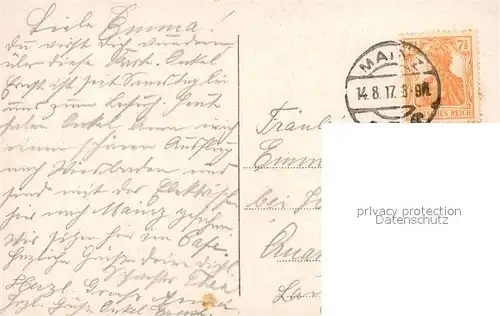 Liebe Emma!
Du wirst dich wundern
über diese Karte. Onkel
Ernst ist seit Samstag bei
uns zum Besuch. Heute
haben Onkel Anna und ich
einen schönen Ausflug
nach Wiesbaden und
sind mit der Elektrischen
hier nach Mainz gefahren.
Wir sitzen hier im Cafe.
Herzliche Grüße deine dich l.
Schwester Thea
Herzl. Gruß Anna
Herzl. Grüße Onkel Ernst.
MAINZ
14.8.17. 8-9N.
7½
DEUTSCHES REICH
Fräulein
Emm
bei
privacy protection
Datenschutz